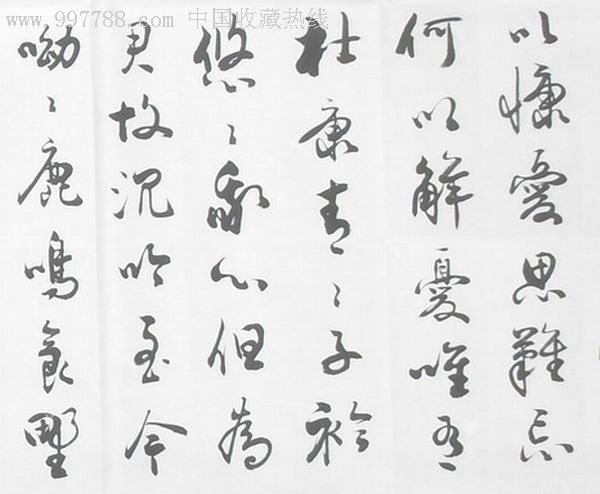 www.997788.com 中国收藏热线
以慷愛思難忘
何以解憂唯有
杜康青〻子衿
悠〻我心但為
君故沉吟至今
呦〻鹿鳴食野